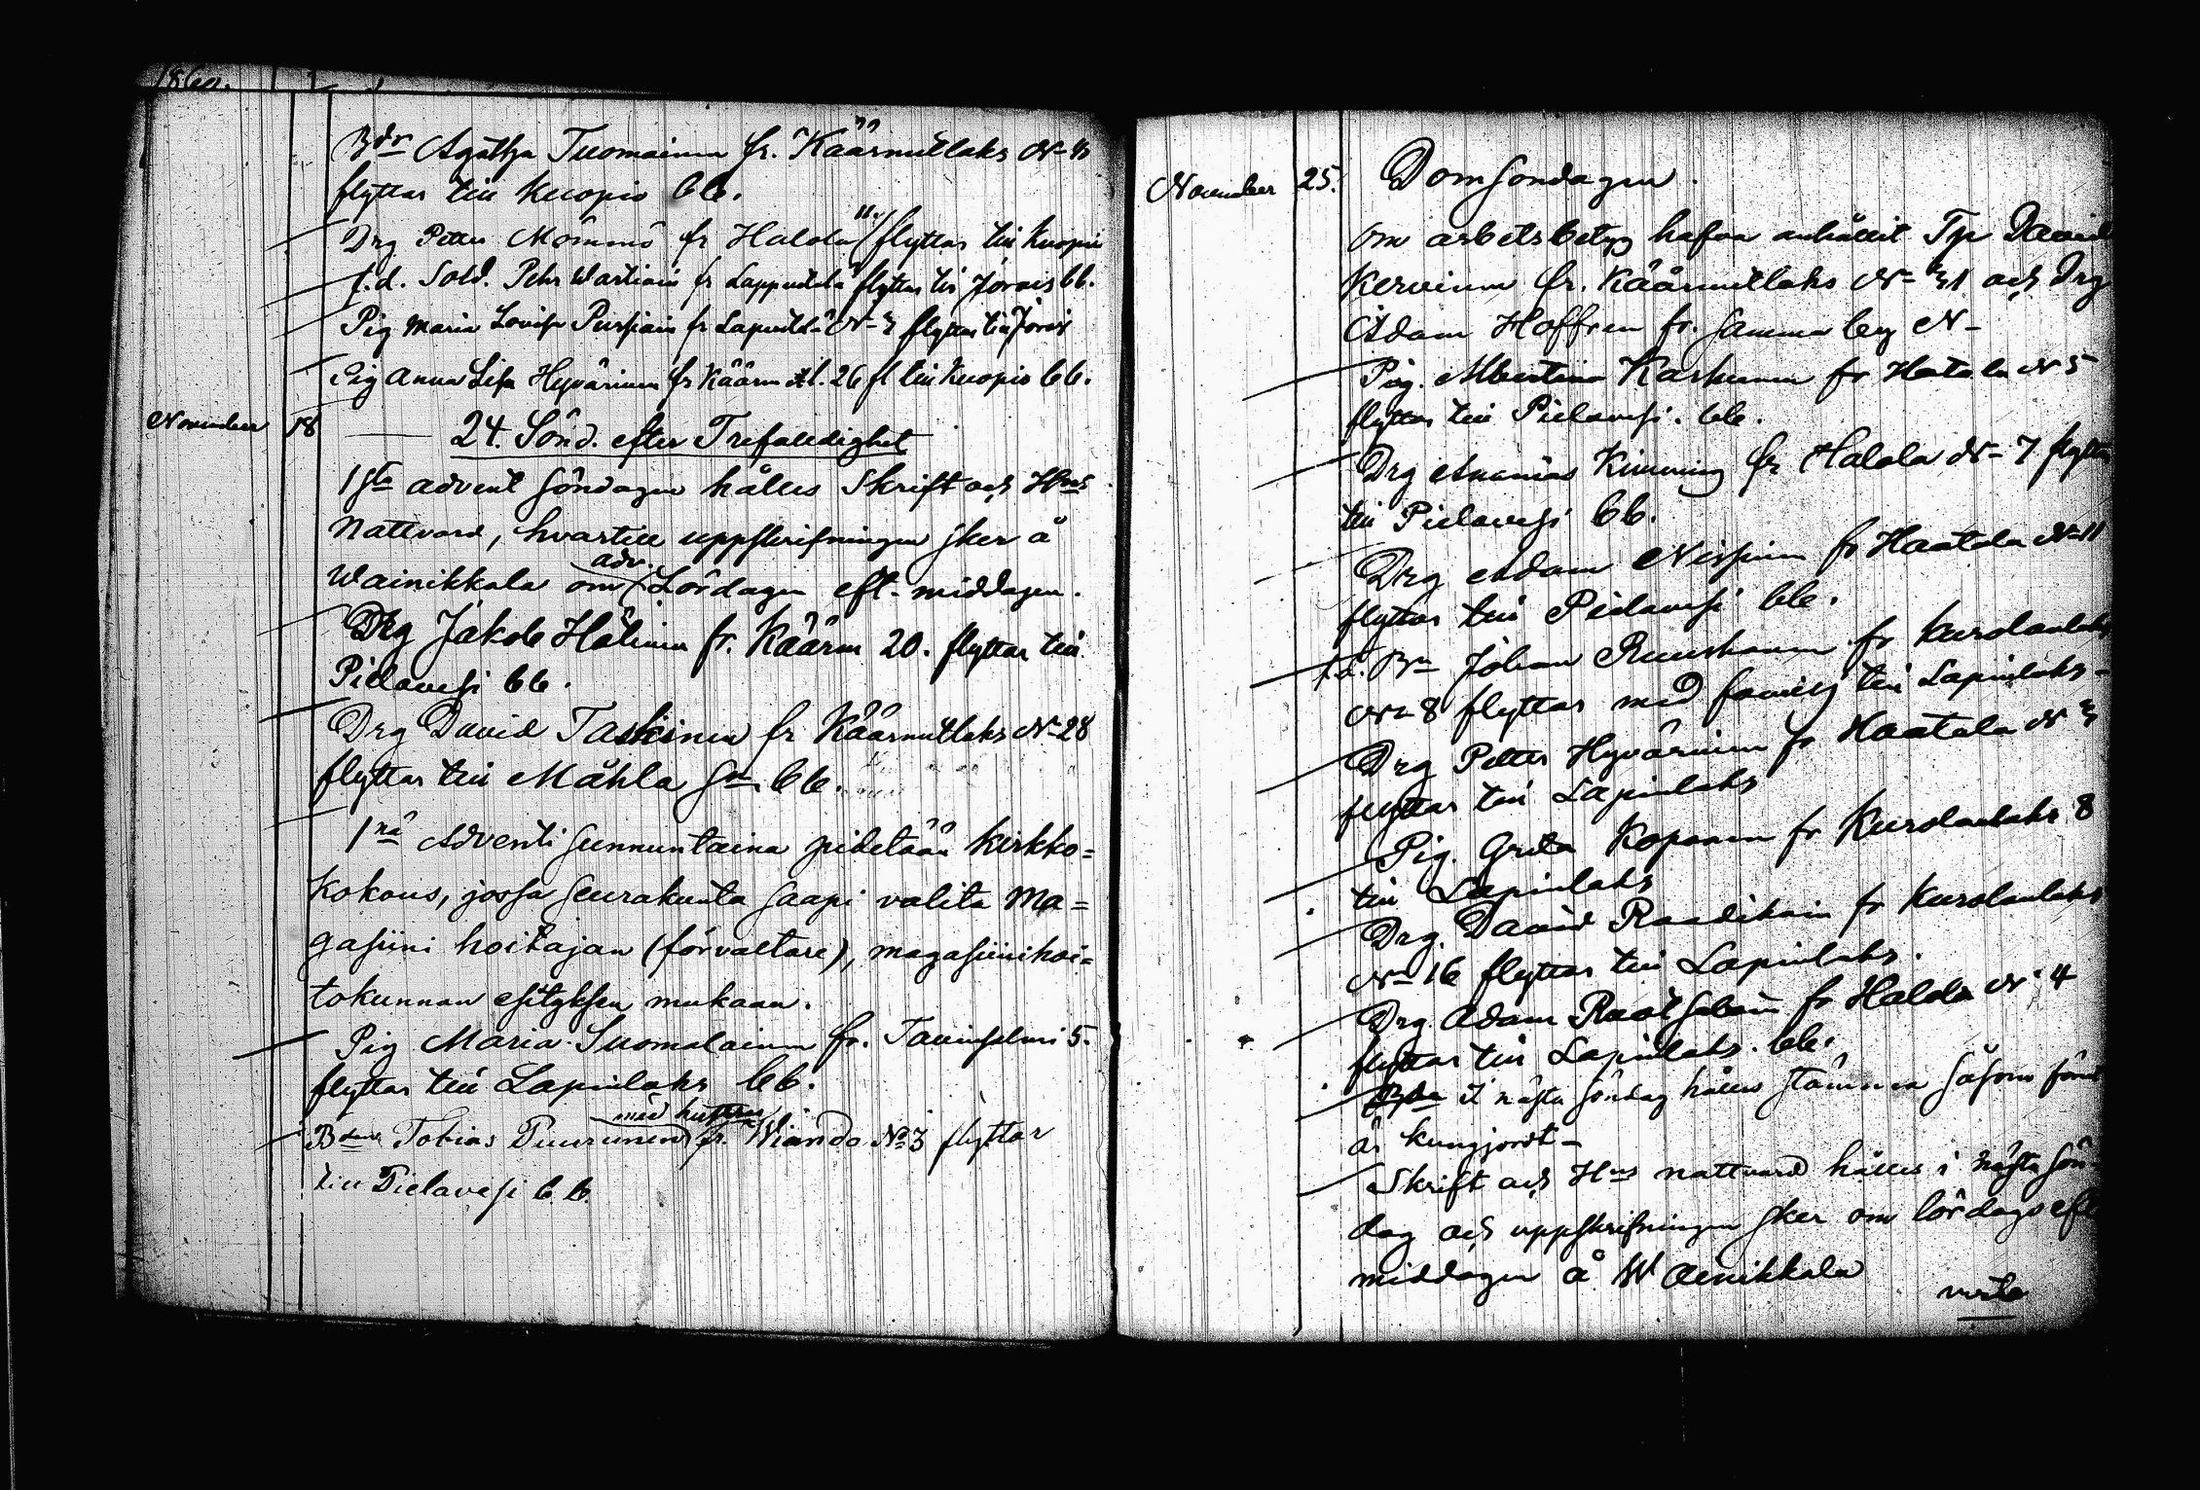 1860.
Bdr Agatha Tuomainen fr. Käärmutlaks N
flyttar till Kuopio bb.
Drg Petter Mömmö fr Halola 11. flyttar till Kuopio
f.d. Sold. Pehr Wartiain fr Lappetelä flyttar till Jorois bb.
Pig Maria Lovisa Pursiain fr Lapvetelä N 3 flyttar till Jorois
Pig Anna Lisa Hyvärinen fr Käärm N. 26 fl till Kuopio bb.
November 18 24. Sönd. efter Trefaldighet
1sta advent söndagen hålles Skrift och Hns
Nattvard, hvartill uppskrifningen sker å
Wainikkala om adv. Lördagen eft. middagen.
Drg Jakob Hälinen fr. Käärm 20. flyttar till
Pielavesi bb.
Drg David Taskinen fr Käärmutlaks N 28
flyttar till Måhla sn bb.
1nä Adventi sunnuntaina pidetään kirkko=
kokous, jossa seurakunta saapi valita Ma=
gasiini hoitajan (förvaltare), magasiinihoi=
tokunnan esityksen mukaan.
Pig Maria Suomalainen fr. Tavinsalmi 5.
flyttar till Lapinlaks bb.
Bdn Tobias Puurunen med hustru fr. Wiando No 3 flyttar
till Pielavesi b.b.
November 25. Domsöndagen.
Om arbetsbetyg hafva anhållit Tp David
Kervinen fr. Käärmutlaks N 31 och Drg
Adam Hoffren fr. samma by N-
Pig. Albertina Karhunen fr Hatala N 5
flyttar till Pielavesi. bb.
Drg Ananias Kimming fr Halola N 7 flyttar
till Pielavesi bb.
Drg Adam Nissinen fr Haatala N 11
flyttar till Pielavesi bb.
f.d. Bn Johan Ruuskanen fr Kurolanlaks
N 8 flyttar med familj till Lapinlaks-
Drg Petter Hyvärinen fr Haatala N 3
flyttar till Lapinlaks
Pig. Greta Koponen fr Kurolanlaks 8
till Lapinlaks
Drg. David Raadikain fr Kurolanlaks
N 16 flyttar till Lapinlaks.
Drg. Adam fr Halola N 4
flyttar till Lapinlaks. bb.
I nästa söndag hålles stämma såsom förut
är kungjordt-
Skrift och Hns nattvard hålles i nästa sön-
dag och uppskrifningen sker om lördags eft
middagen å Wäinikkala
verte